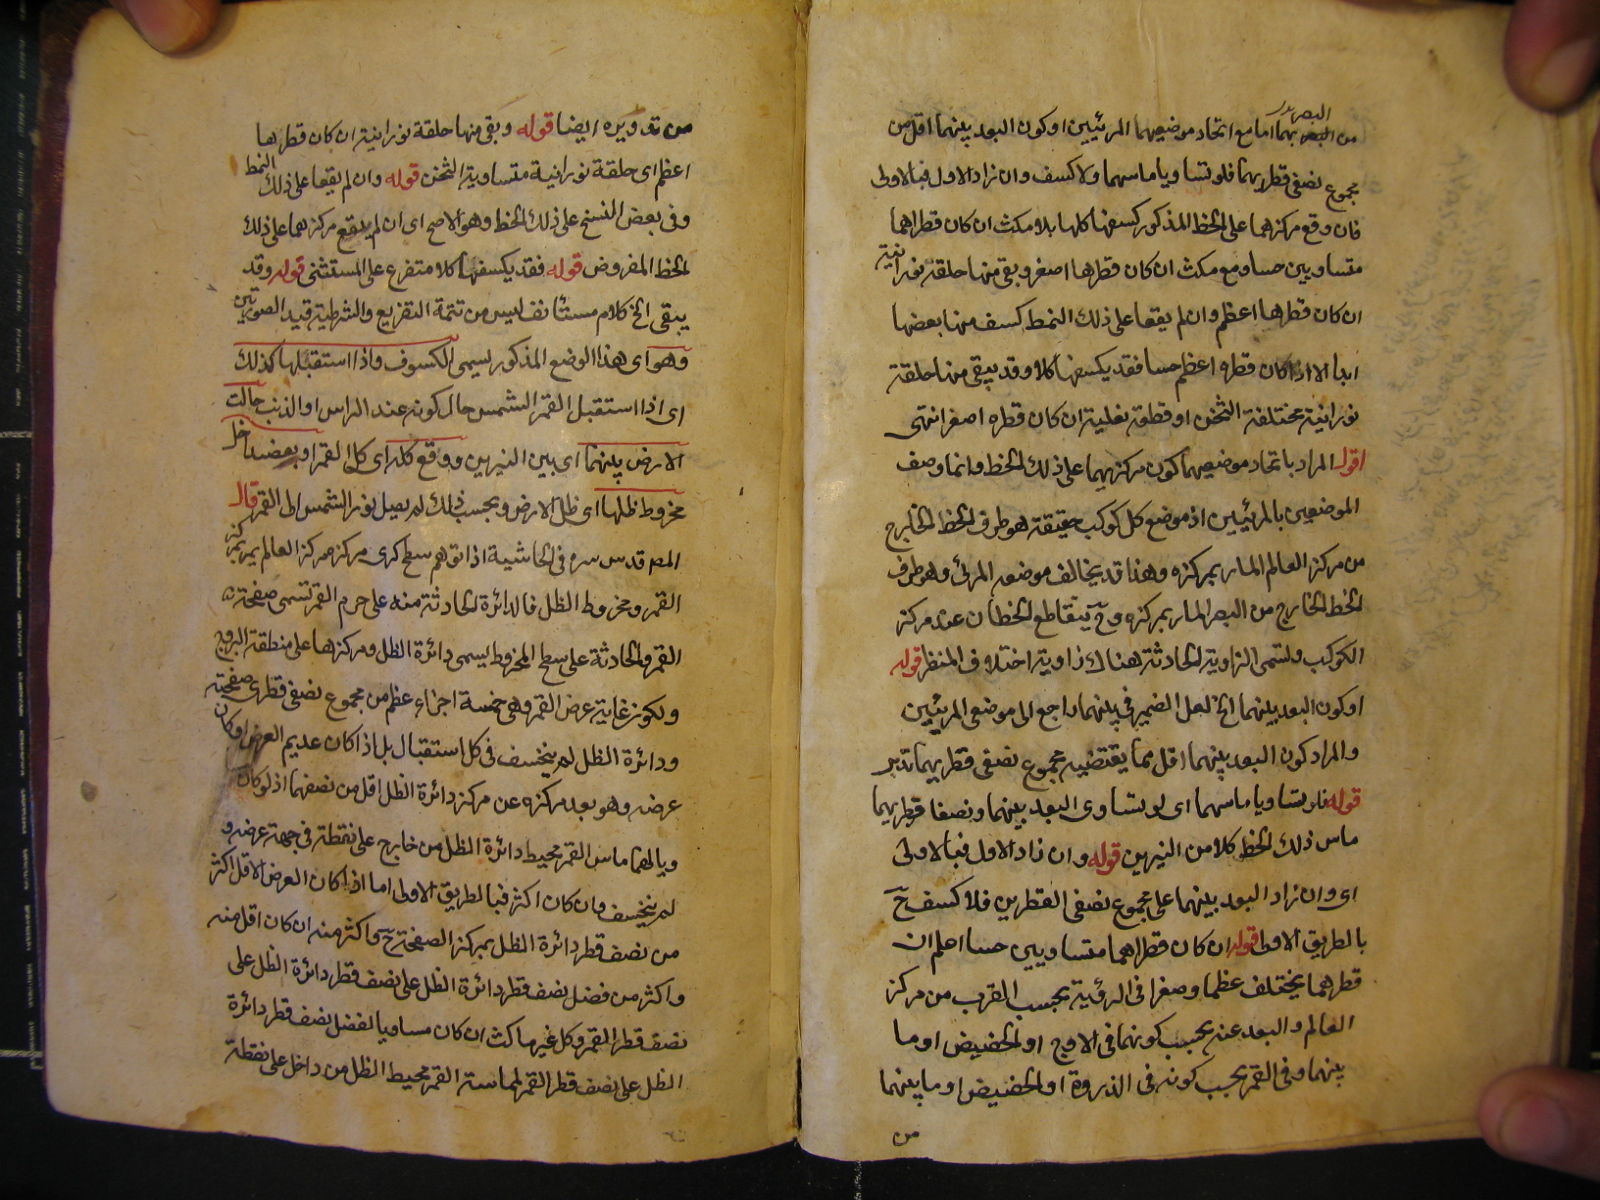 البصر
من البصر بهما مع اتحاد موضعيهما المرئيين او كون البعد بينهما اقل من
مجموع نصفى قطريهما فلو تساويا ماسهما ولا كسف وان زاد الاول فبالاولى
فان وقع مركزهما على الخط المذكور كسفها كلها بلا مكث ان كان قطراهما
متساويين حسا ومع مكث ان كان قطرها اصغر وبقى منها حلقة نورانية
ان كان قطرها اعظم وان لم يقعا على ذلك النمط كسف منها بعضها
ابدا الا اذا كان قطره اعظم حسا فقد يكسفها كلا وقد يبقى منها حلقة
نورانية مختلفة الثخن او قطعة نعلية ان كان قطره اصغر انتهى
اقول المراد باتحاد موضعيهما كون مركزيهما على ذلك الخط وانما وصف
الموضعين بالمرئيين اذ موضع كل كوكب حقيقة هو طرف الخط الخارج
من مركز العالم المار بمركزه وهذا قد يخالف موضعه المرئى وهو طرف
الخط الخارج من البصر المار بمركزه وح يتقاطع الخطان عند مركز
الكوكب وتسمى الزاوية الحادثة هناك زاوية اختلاف المنظر قوله
او كون البعد بينهما الخ لعل الضمير فى بينهما راجع الى موضعى المرئيين
والمراد كون البعد بينهما اقل مما يقتضيه مجموع نصفى قطريهما تدبر
قوله فلو تساويا ماسهما اى لو تساوى البعد بينهما ونصفا قطريهما
ماس ذلك الخط كلا من النيرين قوله وان زاد الاول فبالاولى
اى وان زاد البعد بينهما على مجموع نصفى القطرين فلا كسف ح
بالطريق الاولى قوله ان كان قطراهما متساويين حسا اعلم ان
قطرهما يختلف عظما وصغرا فى الرؤية بحسب القرب من مركز
العالم والبعد عنه بحسب كونهما فى الاوج او الحضيض او ما
بينهما وفى القمر بحسب كونه فى الذروة او الحضيض او ما بينهما
من
من تدويره ايضا قوله وبقى منها حلقة نورانية ان كان قطرها
اعظم اى حلقة نورانية متساوية الثخن قوله وان لم يقعا على ذلك النمط
وفى بعض النسخ على ذلك الخط وهو الاصح اى ان لم يقع مركزهما على ذلك
الخط المفروض قوله فقد يكسفها كلا متفرع على المستثنى قوله وقد
يبقى الخ كلام مستأنف ليس من تتمة التفريع والشرطية قيد الصورتين
وهو اى هذا الوضع المذكور يسمى الكسوف واذا استقبلها كذلك
اى اذا استقبل القمر الشمس حال كونه عند الراس او الذنب حالت
الارض بينهما اى بين النيرين ووقع كله اى كل القمر او بعضه داخل
مخروط ظلها اى ظل الارض وبحسب ذلك لم يصل نور الشمس الى القمر قال
المص قدس سره فى الحاشية اذا توهم سطح كرى مركزه مركز العالم يمر بمركز
القمر ومخروط الظل فالدائرة الحادثة منه على جرم القمر تسمى صفحة
القمر والحادثة على سطح المخروط يسمى دائرة الظل ومركزها على منطقة البروج
ولكون غاية عرض القمر وهى خمسة اجزاء اعظم من مجموع نصفى قطرى صفحته
ودائرة الظل لم ينخسف فى كل استقبال بل اذا كان عديم العرض او كان
عرضه وهو بعد مركزه عن مركز دائرة الظل اقل من نصفهما اذ لو كان
مساويا لهما ماس القمر محيط دائرة الظل من خارج على نقطة فى جهة عرضه و
لم ينخسف وان كان اكثر فبالطريق الاولى اما اذا كان العرض الاقل اكثر
من نصف قطر دائرة الظل بمركز الصفحة ح واكثر منه ان كان اقل منه
واكثر من فضل نصف قطر دائرة الظل على نصف قطر دائرة الظل على
نصف قطر القمر وكل غير ماكث ان كان مساويا لفضل نصف قطر دائرة
الظل على نصف قطر القمر لمماسة القمر محيط الظل من داخل على نقطة